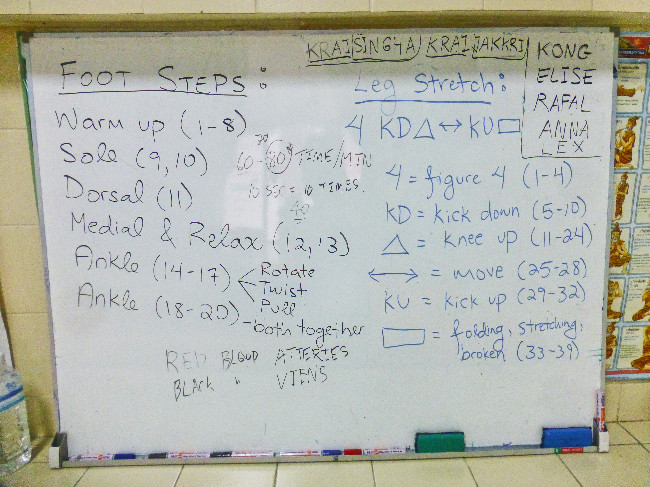 KRAI SINGHA KRAI JAKKRI
KONG
ELISE
RAFAL
ANNA
LEX
FOOT STEPS:
Warm up (1-8)
Sole (9,10)
Dorsal (11)
Medial & Relax (12,13)
Ankle (14-17) < Rotate
Twist
Pull
Ankle (18-20) - both together
60-80 TIME/MIN
10 SEC = 10 TIMES.
RED BLOOD ATTERIES
BLACK " VIENS
Leg Stretch:
4 KD △ ↔ KU ▭
4 = figure 4 (1-4)
KD = kick down (5-10)
△ = knee up (11-24)
↔ = move (25-28)
KU = kick up (29-32)
▭ = folding, stretching,
broken (33-39)